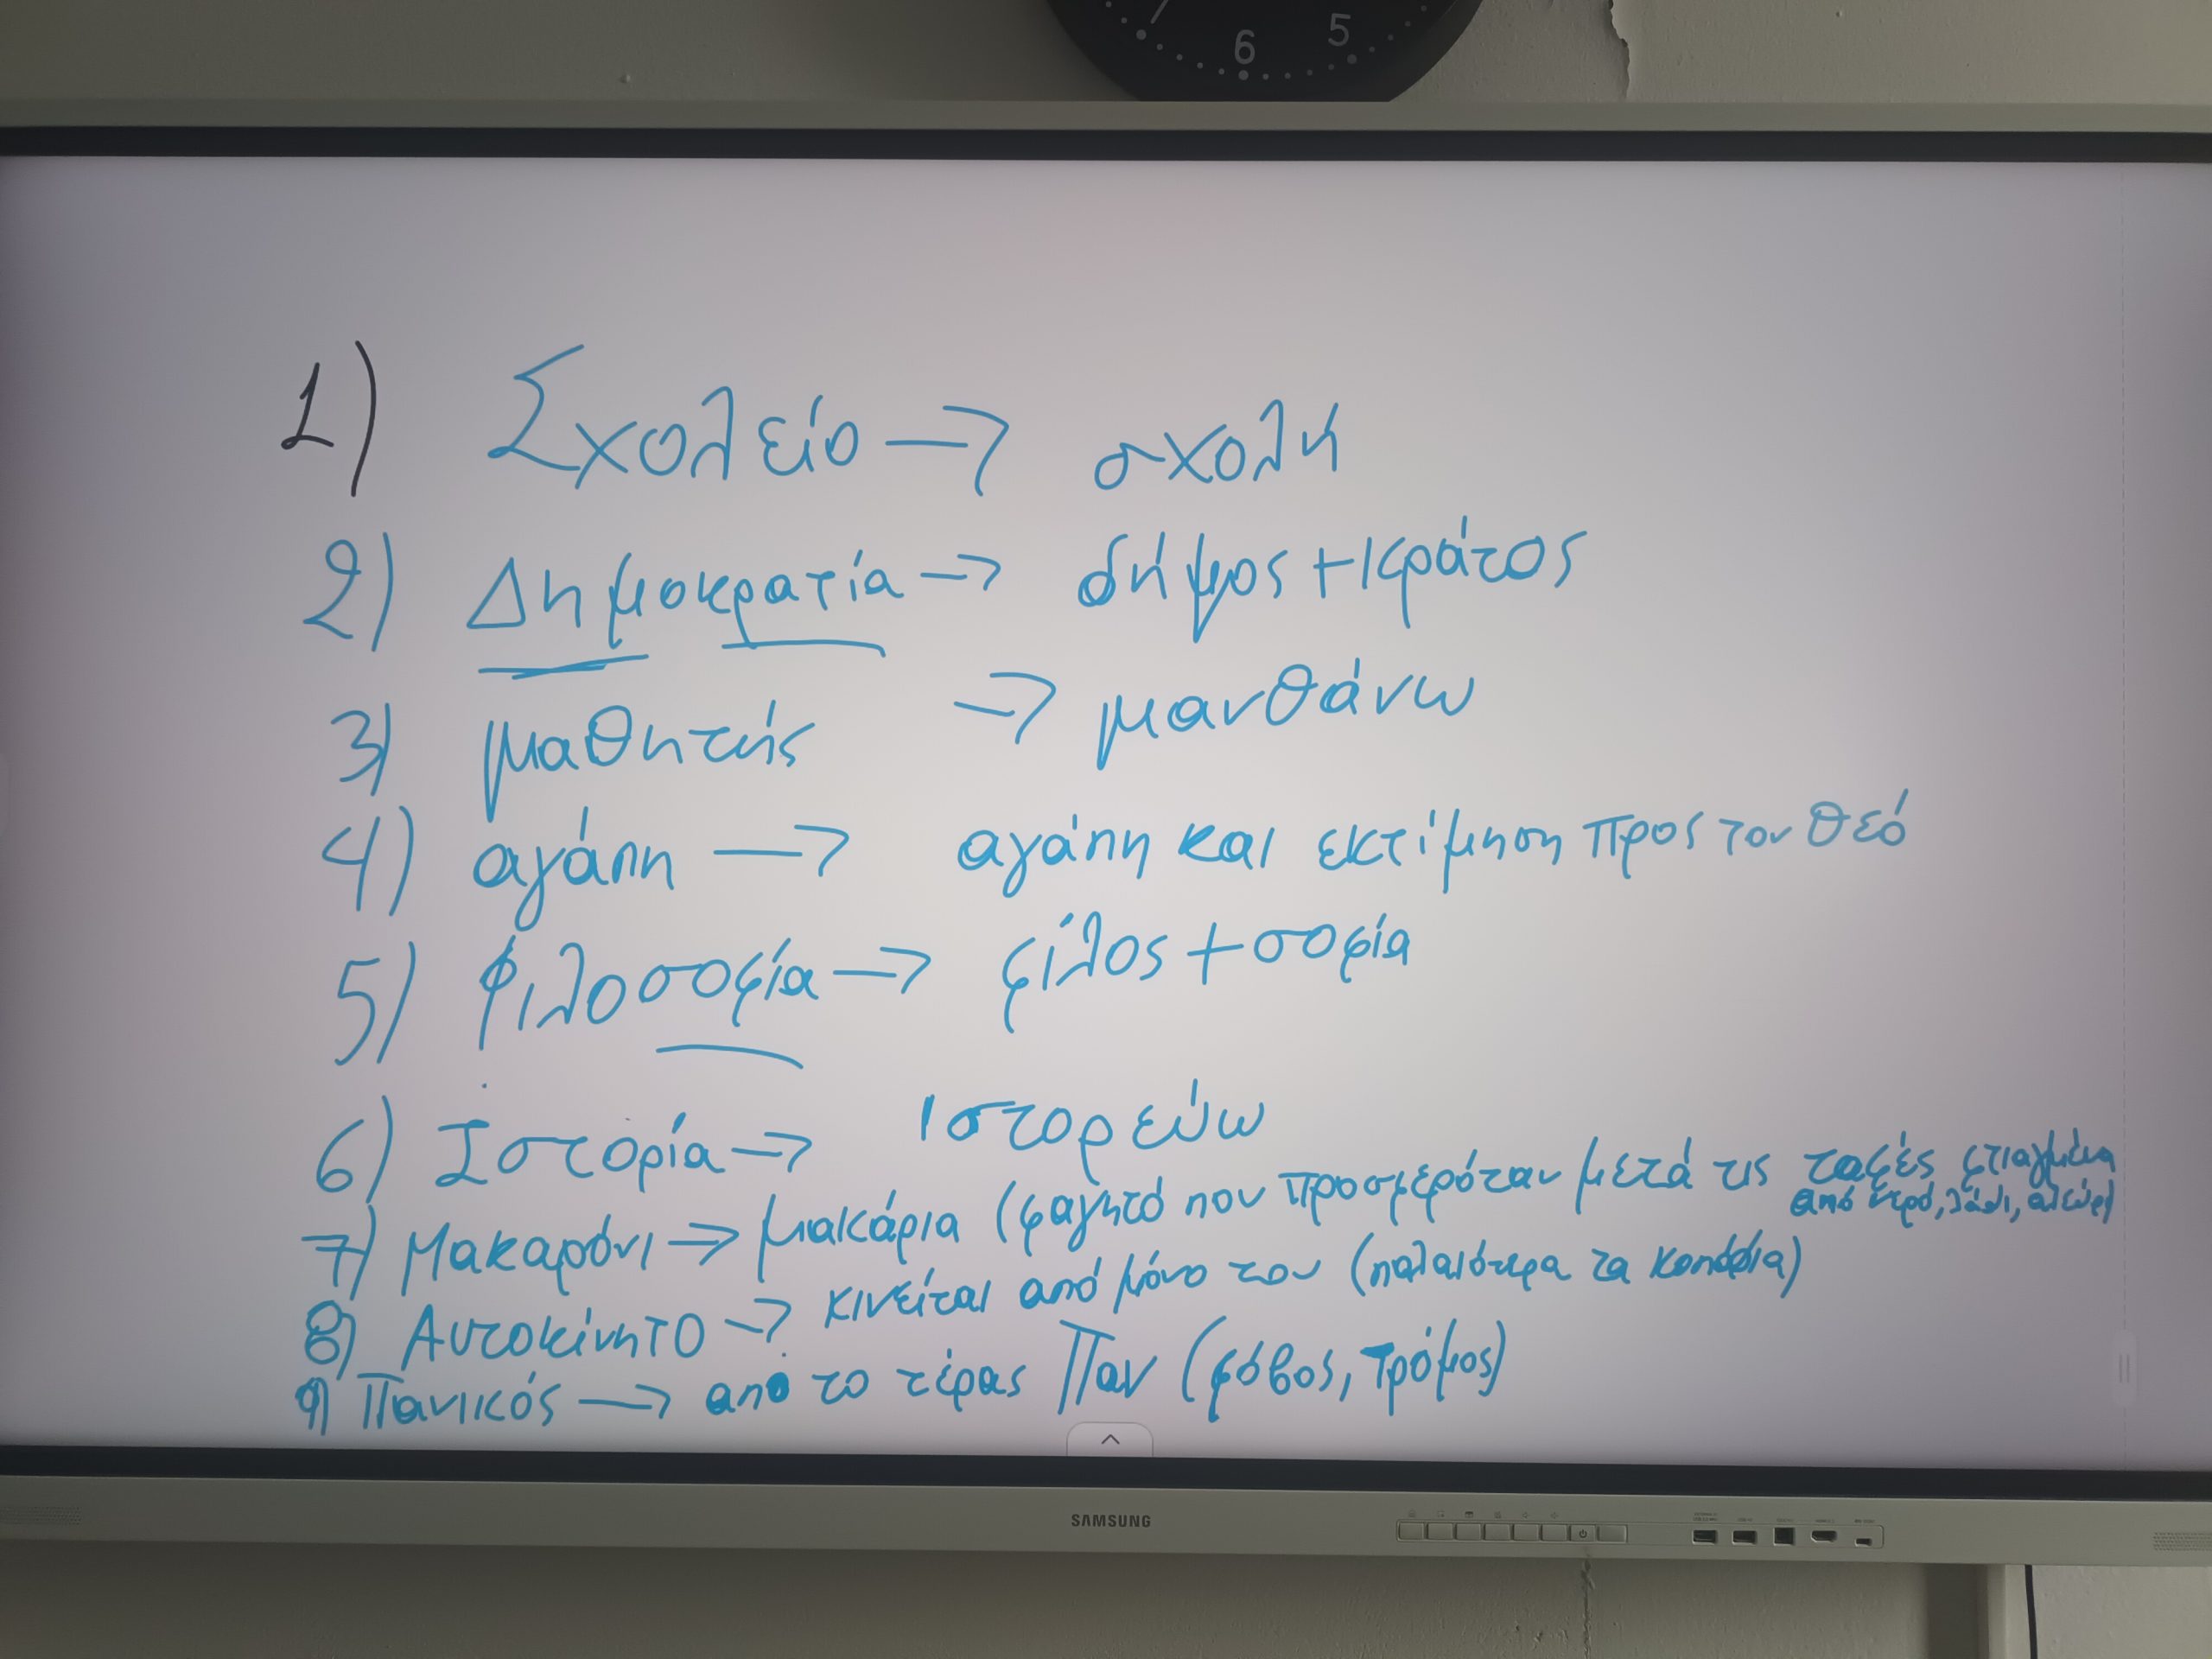 6 5
1) Σχολείο → σχολή
2) Δημοκρατία → δήμος + κράτος
3) μαθητής → μανθάνω
4) αγάπη → αγάπη και εκτίμηση προς τον θεό
5) φιλοσοφία → φίλος + σοφία
6) Ιστορία → Ιστορεύω
7) Μακαρόνι → μακάρια (φαγητό που προσφερόταν μετά τις ταφές φτιαγμένη
από νερό, λάδι, αλεύρι)
8) Αυτοκίνητο → κινείται από μόνο του (παλαιότερα τα κοπάδια)
9) Πανικός → από το τέρας Παν (φόβος, τρόμος)
SAMSUNG